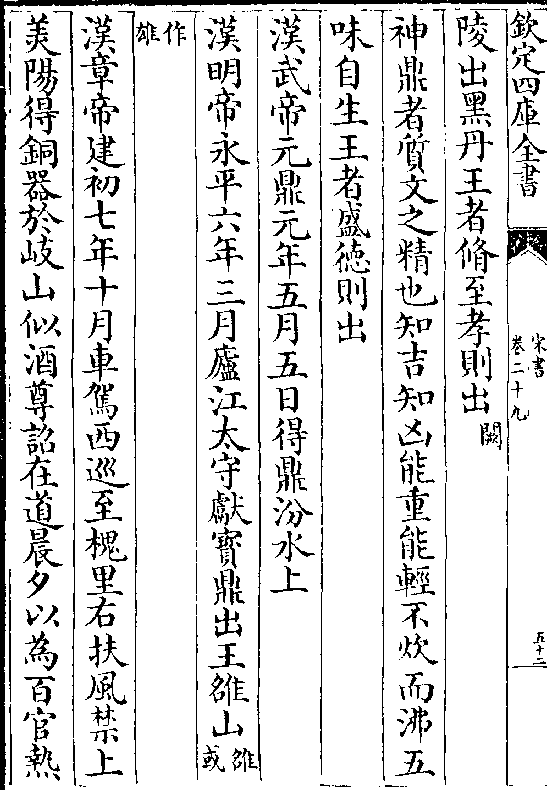 欽定四庫全書
宋書
卷二十九
五十二
陵出黑丹王者脩至孝則出闕
神鼎者質文之精也知吉知凶能重能輕不炊而沸五
味自生王者盛德則出
漢武帝元鼎元年五月五日得鼎汾水上
漢明帝永平六年三月廬江太守獻寶鼎出王雒山雒或
作雄
漢章帝建初七年十月車駕西巡至槐里右扶風禁上
美陽得銅器於岐山似酒尊詔在道晨夕以為百官熱